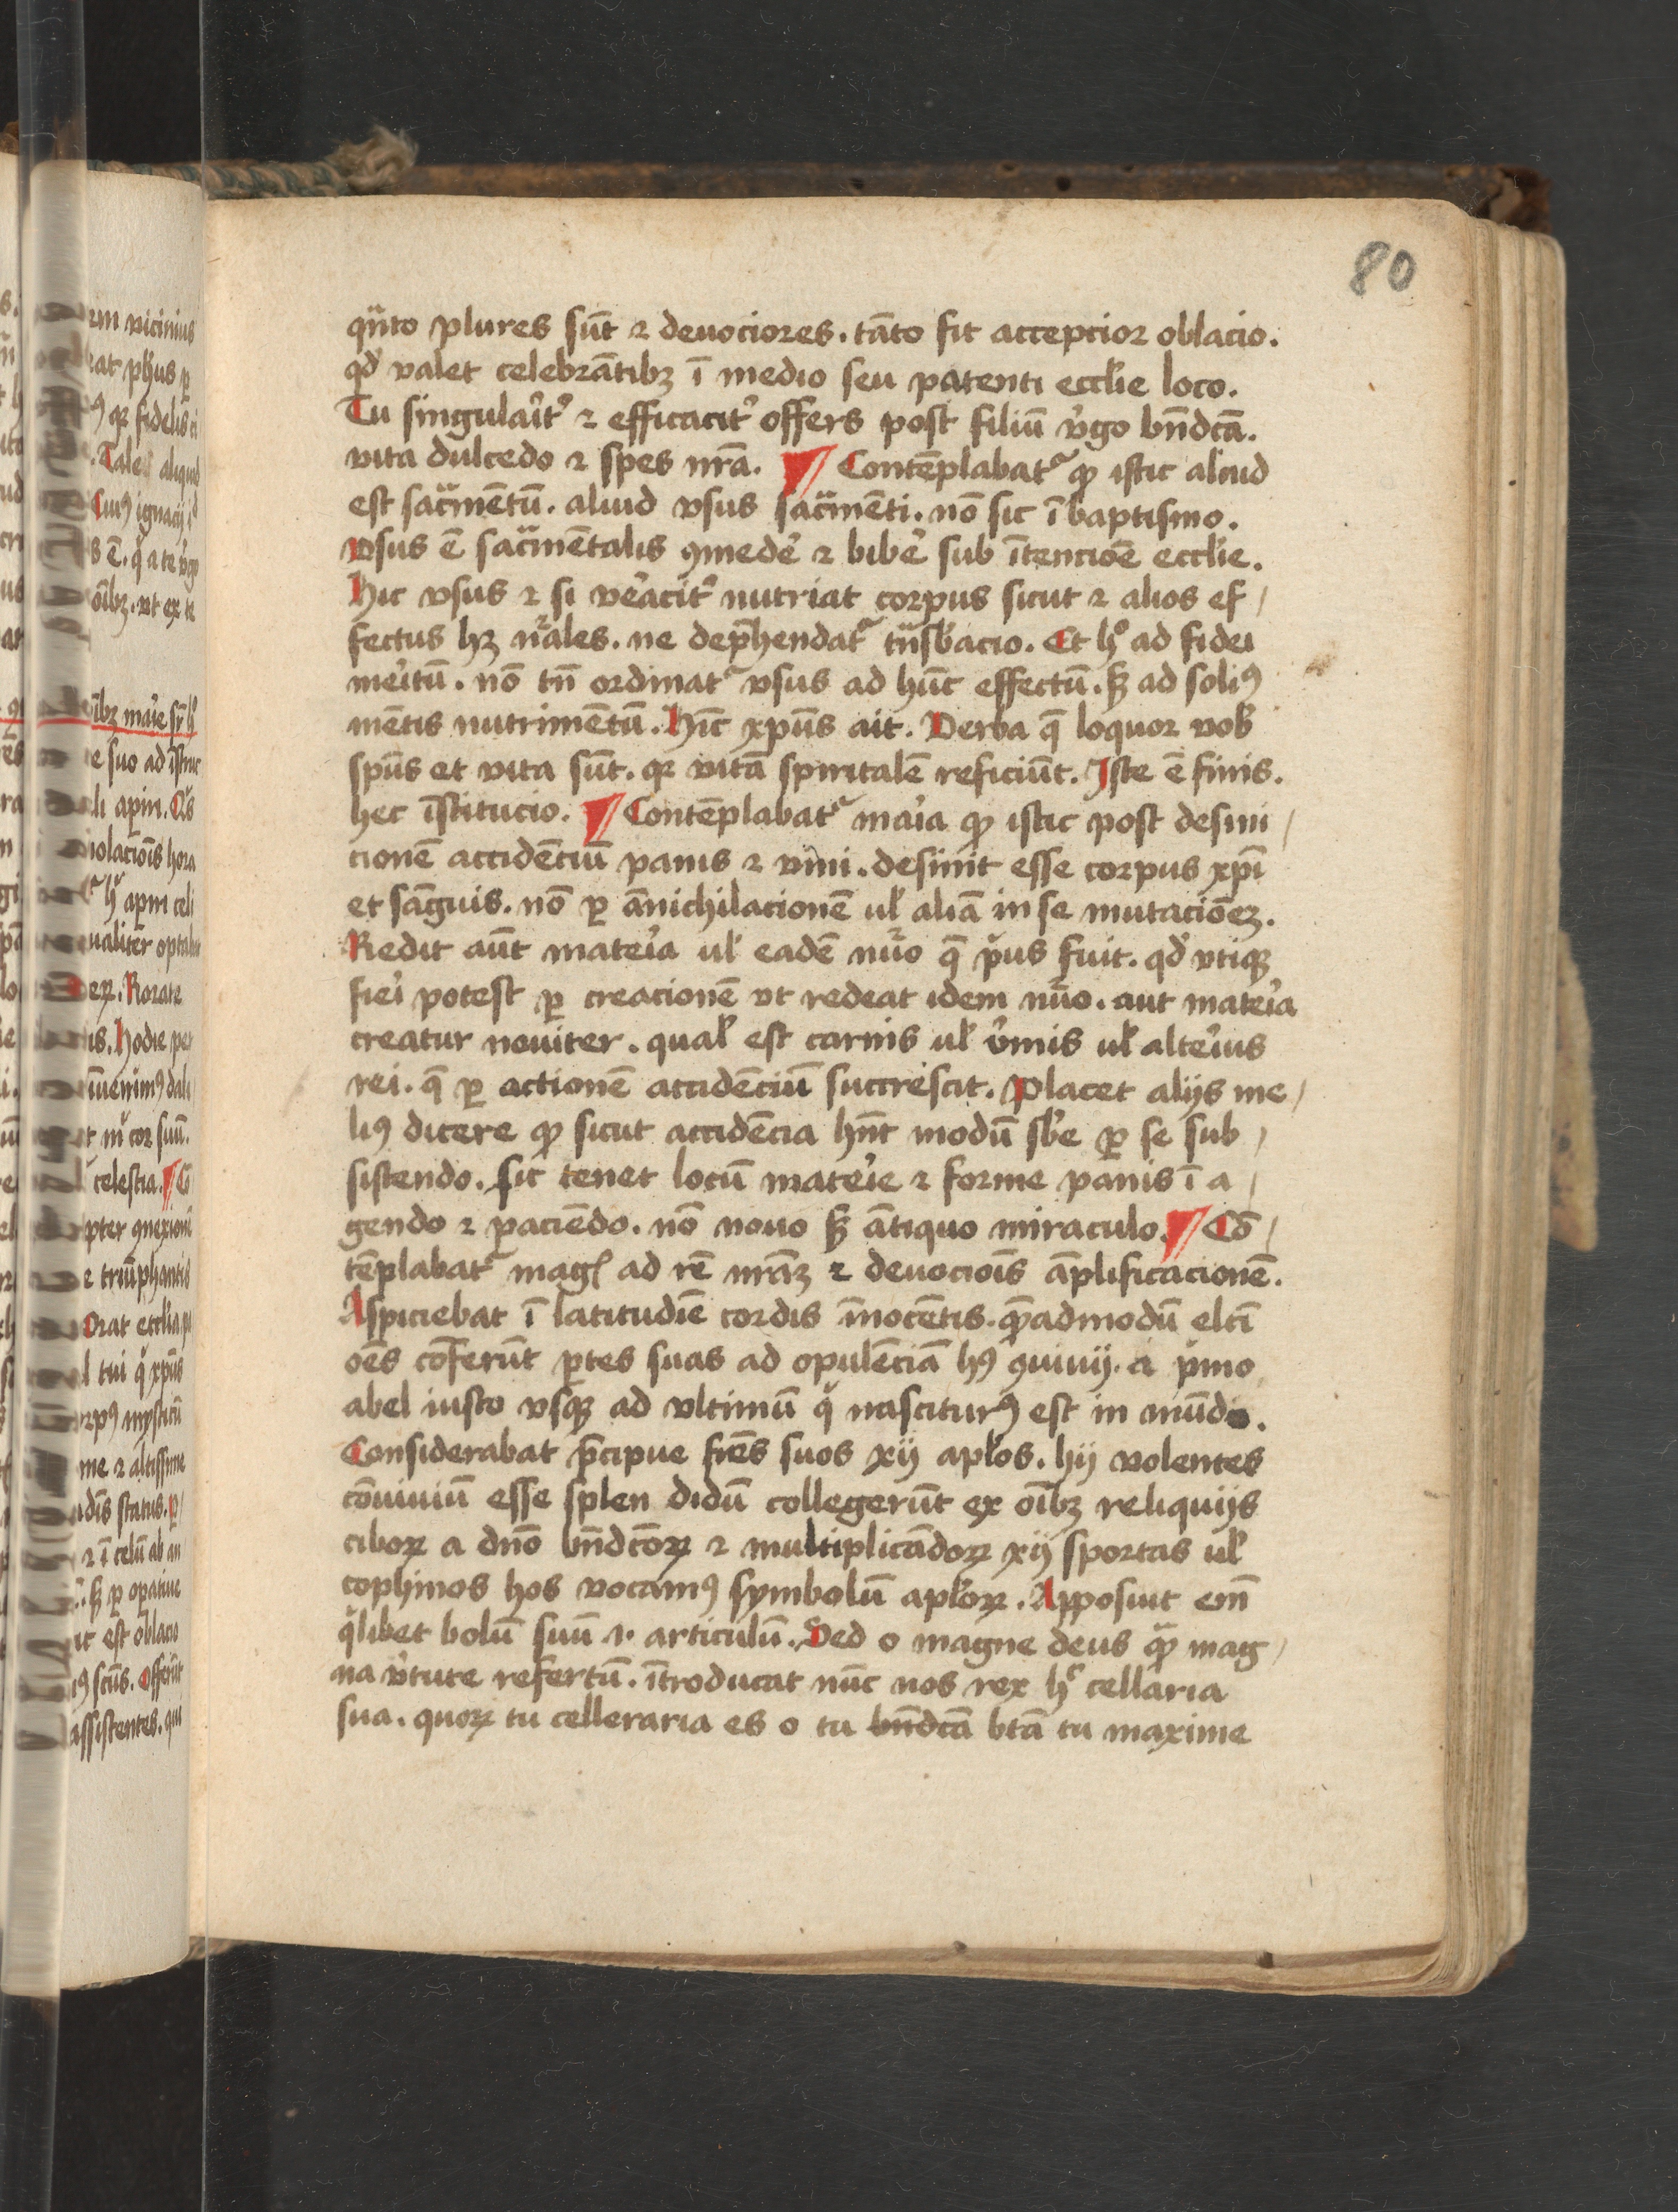 80
qn̄to plures sūt ⁊ deuociores. tāto fit acceptior oblacio.
qd̓ valet celebrātibꝫ ī medio seu patenti eccl̓ie loco.
Tu singulaīt̓ ⁊ efficacit̓ offers post filiū v̓go bn̄dc̄ā.
vita dulcedo ⁊ spes nr̄a. ¶ Contēplabat᷑ ꝙ istic aliud
est sac̄mentū. aliud vsus sac̄mēti. nō sic ī baptismo.
Vsus ē sac̄mētalis ꝯmedē ⁊ bibē sub ītencioē eccl̓ie.
Hic vsus ⁊ si veracit̓ nutriat corpus sicut ⁊ alios ef/
fectus hꝫ nāles. ne dep̄hendat᷑ tn̄sb̓acio. Et hͦ ad fidei
mēitū. nō tn̄ ordinat᷑ vsus ad hūc effectū. sꝫ ad soliꝰ
mētis nutrimētū. Hīc xp̄us ait. Verba q̄ loquor vob̓
sp̄us et vita sūt. qꝛ vitā spiritalē reficiūt. Iste ē finis.
hec īstitucio. ¶ Contēplabat᷑ maīa ꝙ istic post desini/
tionē accidēciū panis ⁊ vini. desinit esse corpus xp̄i
et sāguis. nō ꝑ ānichilacionē ul̓ aliā in se mutacioēꝫ.
Redit aūt mateīa ul̓ eadē nūo q̄ p̓us fuit. qd̓ vtiqꝫ
fieī potest ꝑ creacionē vt redeat idem nūo. aut mateīa
creatur nouiter. qual̓ est carnis ul̓ v̓mis ul̓ alteīus
rei. q̄ ꝑ actionē accidēciū succrescit. Placet alijs me/
liꝰ dicere ꝙ sicut accidēcia hn̄t modū sb̓e ꝑ se sub/
sistendo. sic tenet locū mateīe ⁊ forme panis ī a/
gendo ⁊ paciēdo. nō nouo sꝫ ātiquo miraculo. ¶ Cō/
tēplabat᷑ mag̓ ad rē nr̄aꝫ ⁊ deuociōis āplificacionē.
Aspiciebat ī latitudīe cordis īnocētis. quē̄admodū elc̄i
oēs cōferūt ꝑtes suas ad opulēciā hꝰ ꝯuiuij. a p̓mo
abel iusto vsqꝫ ad vltimū q̓ nasciturꝰ est in mūdo.
Considerabat p̄cipue fr̄es suos xij apl̓os. hij volentes
cōuiuiū esse splen didū collegerūt ex oībꝫ reliquijs
ciboꝝ a dn̄o bn̄dc̄oꝝ ⁊ multiplicādoꝝ xij sportas ul̓
cophinos hos vocamꝰ symbolū apl̓oꝝ. Apposuit em̄
q̓libet bolū suū .i. articulū. Sed o magne deus quā mag/
na v̓tute refertū. ītroducat nūc nos rex hͨ cellaria
sua. quoꝝ tu celleraria es o tu bn̄dc̄ā bt̄ā tu maxime